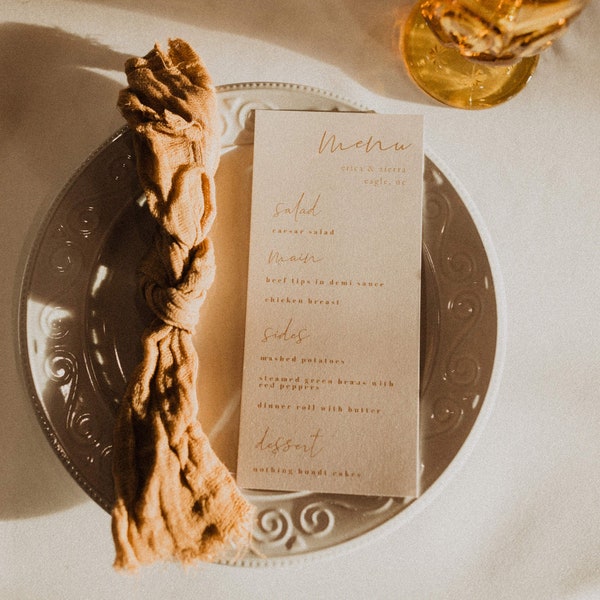 Menu
erica & sierra
eagle, ne
salad
caesar salad
main
beef tips in demi sauce
chicken breast
sides
mashed potatoes
steamed green beans with
red peppers
dinner roll with butter
dessert
nothing bundt cakes